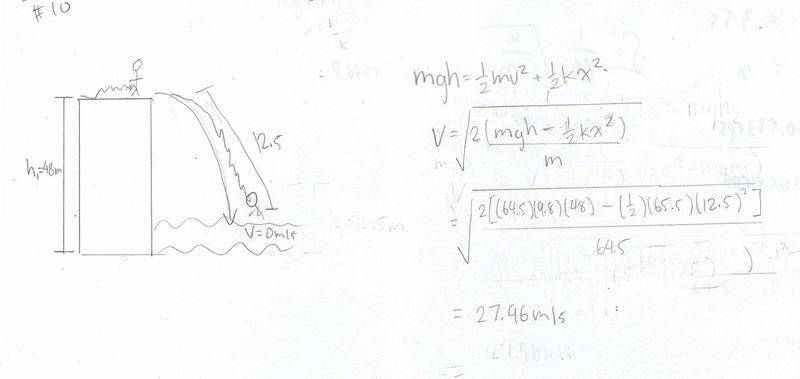 #10
h₁=48m
12.5
V=0m/s
mgh = ½mv² + ½kx²
V = √(2(mgh - ½kx²) / m)
= √(2[(64.5)(9.8)(48) - (½)(65.5)(12.5)²] / 64.5)
= 27.96m/s